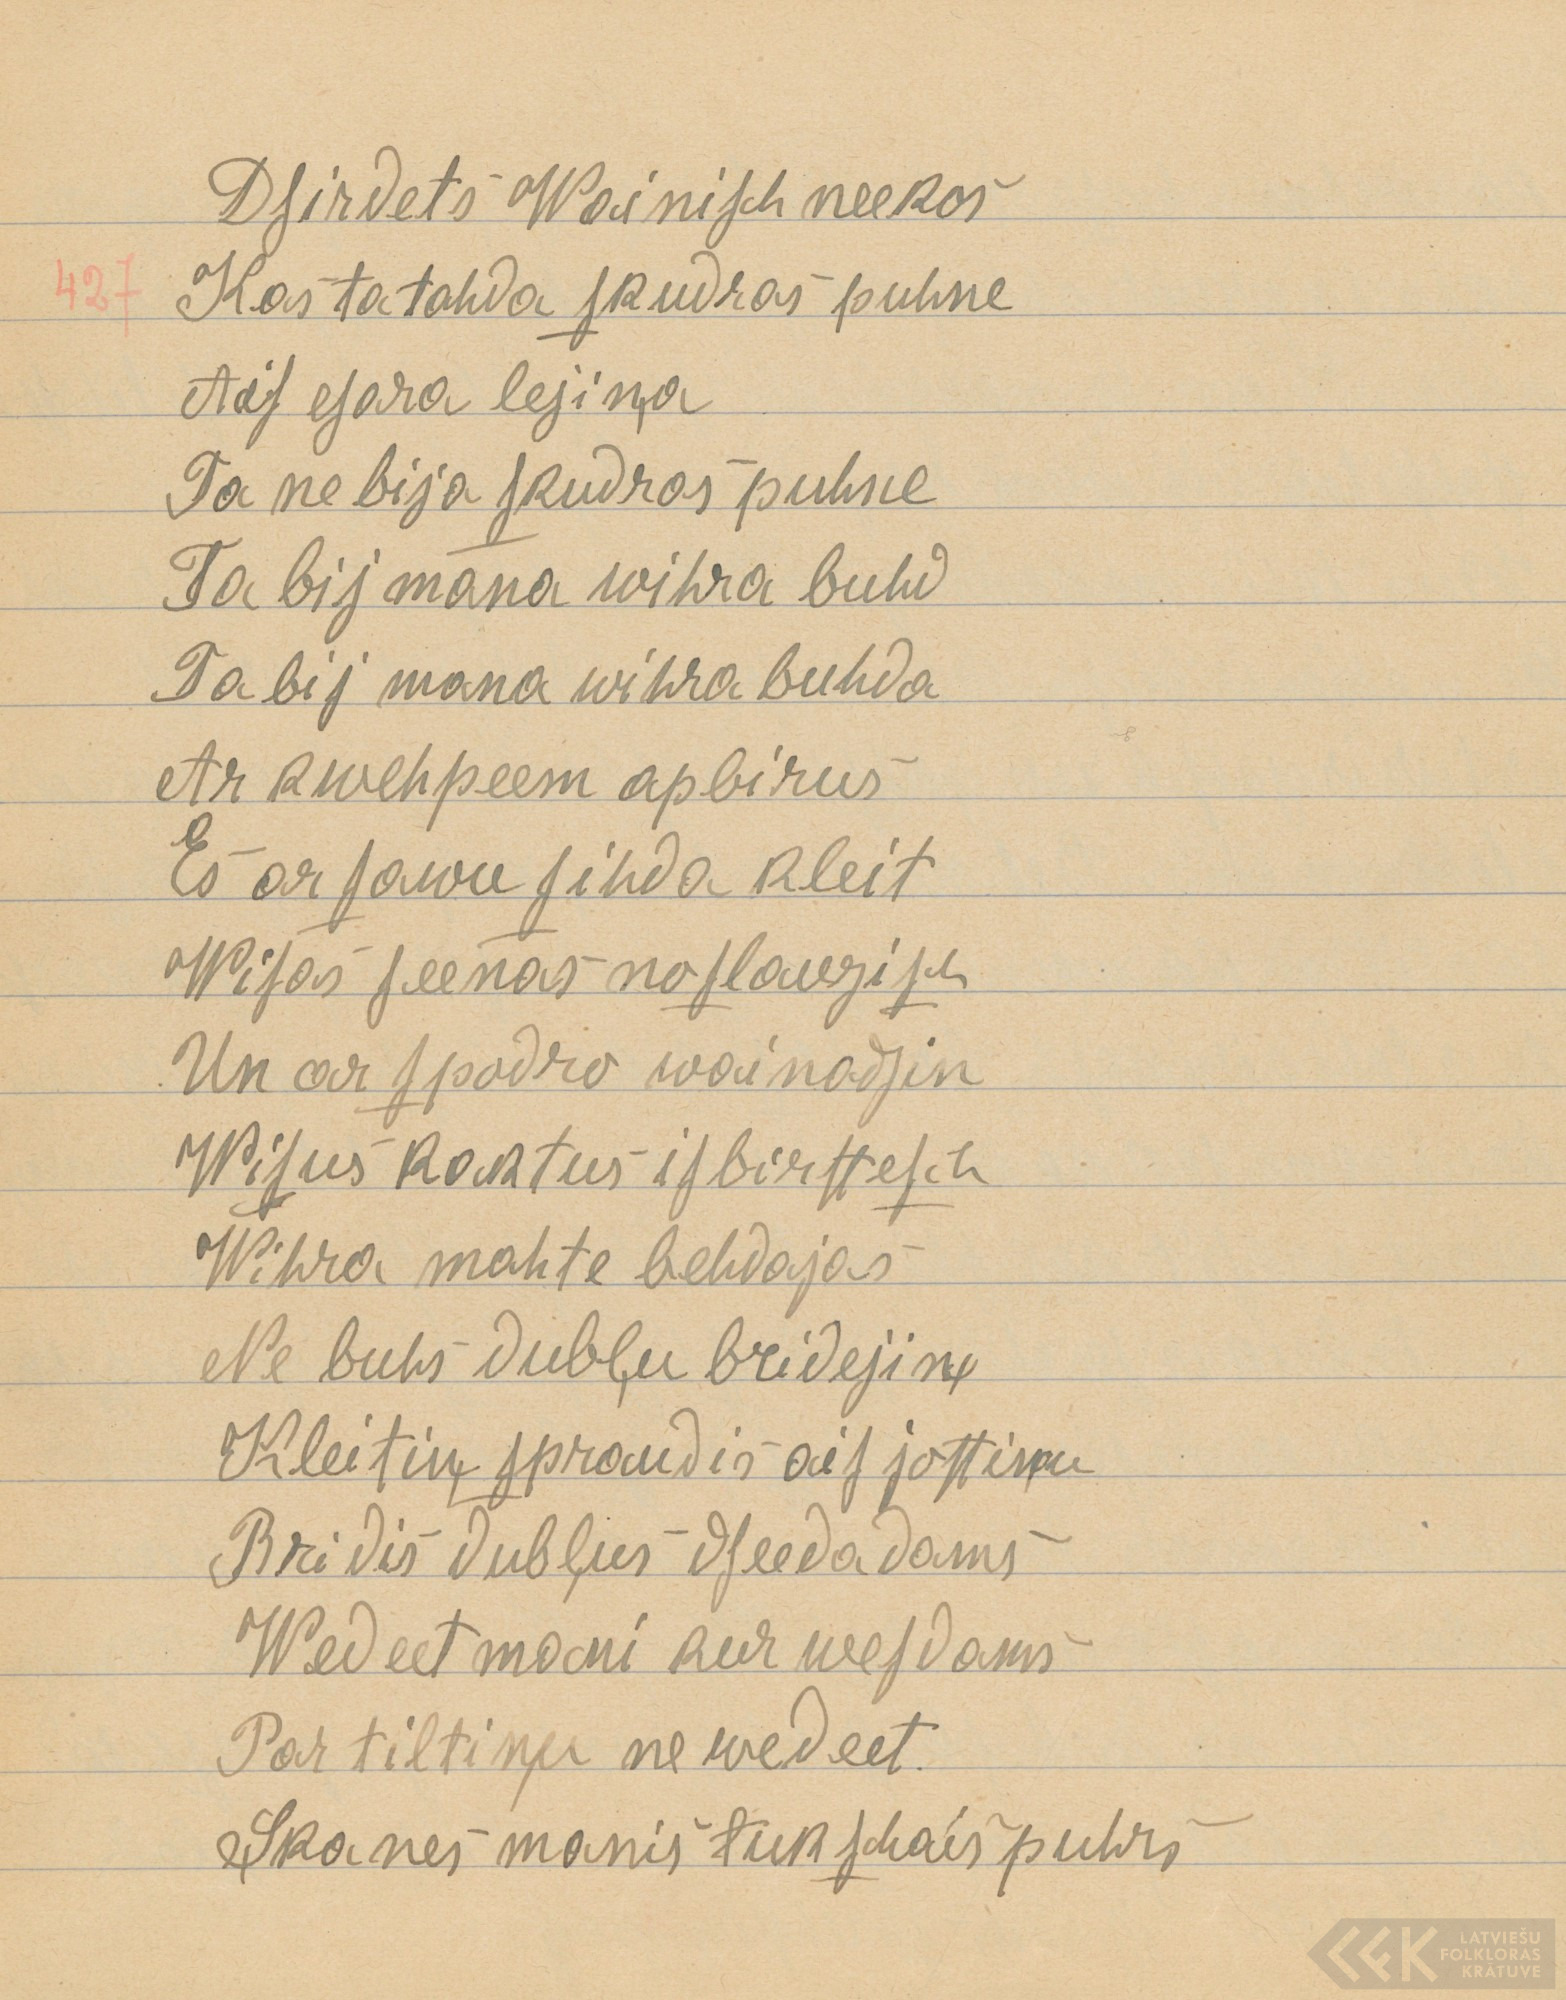 Dſirdets Wainiſch neekos
427 Kas ta tahda ſkudras puhne
Aiſ eſara lejiņa
Ta ne bija ſkudras puhne
Ta bij mana wihra buhd
Ta bij mana wihra buhda
Ar kwehpeem apbirus
Es ar ſawu ſihda kleit
Wiſas ſeenas noſlauziſch
Un ar ſpodro wainadſin
Wiſus kaktus iſbirſteſch
Wihra mahte behdajas
Ne buhs dubļu bridejiņ
Kleitiņ ſpraudis aiſ joſtiņu
Bridis dubļus dſeedadams
Wedeet mani kur weſdams
Par tiltiņu ne wedeet.
Skanes manis tukſchais puhrs
LATVIEŠU
FOLKLORAS
KRĀTUVE